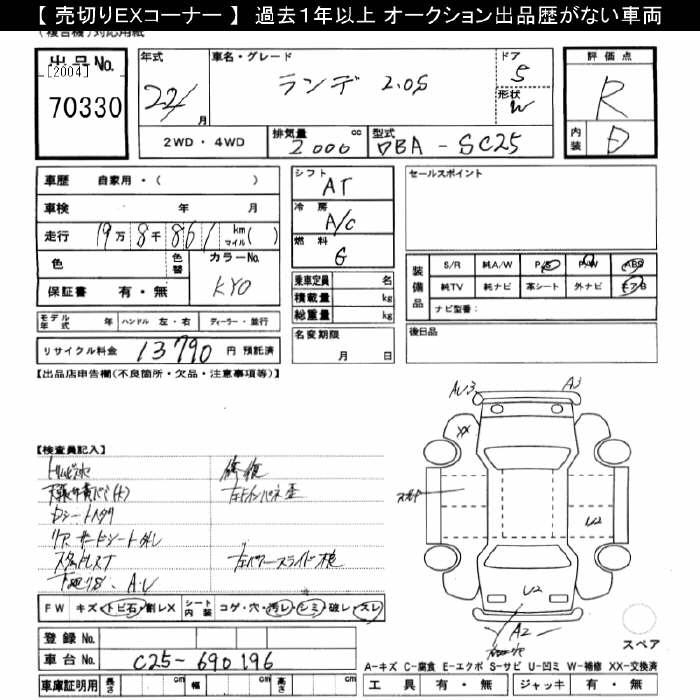 【 売切りEXコーナー 】 過去１年以上 オークション出品歴がない車両
(複合機)対応用紙
出品No.
[2004]
70330
年式
22/
月
車名・グレード
ランデ 2.0S
ドア
5
形状
W
2WD・4WD
排気量
cc
2000
型式
DBA-SC25
評価点
R
内装
D
車歴 自家用・( )
車検 年 月
走行 19万 8千 861 km マイル( )
色
色替
カラーNo.
KYO
保証書 有・無
モデル年式 年 ハンドル 左・右 ディーラー・並行
リサイクル料金 13790 円 預託済
シフト
AT
冷房
A/C
燃料
G
乗車定員 名
積載量 kg
総重量 kg
名変期限
月 日
セールスポイント
装備品
S/R 純A/W P/S P/W ABS
純TV 純ナビ 革シート 外ナビ エアB
ナビ型番：
後日品
【出品店申告欄(不良箇所・欠品・注意事項等)】
【検査員記入】
修復
下廻りS、A.U
FW キズ・トビ石・割レX シート内装 コゲ・穴・汚レ・シミ・破レ・スレ
登録 No.
車台 No. C25-690196
車庫証明用 長さ cm 幅 cm 高さ cm
AU3
A3
XX
U2
U2
A2
スペア
A-キズ C-腐食 E-エクボ S-サビ U-凹ミ W-補修 XX-交換済
工具 有・無 ジャッキ 有・無